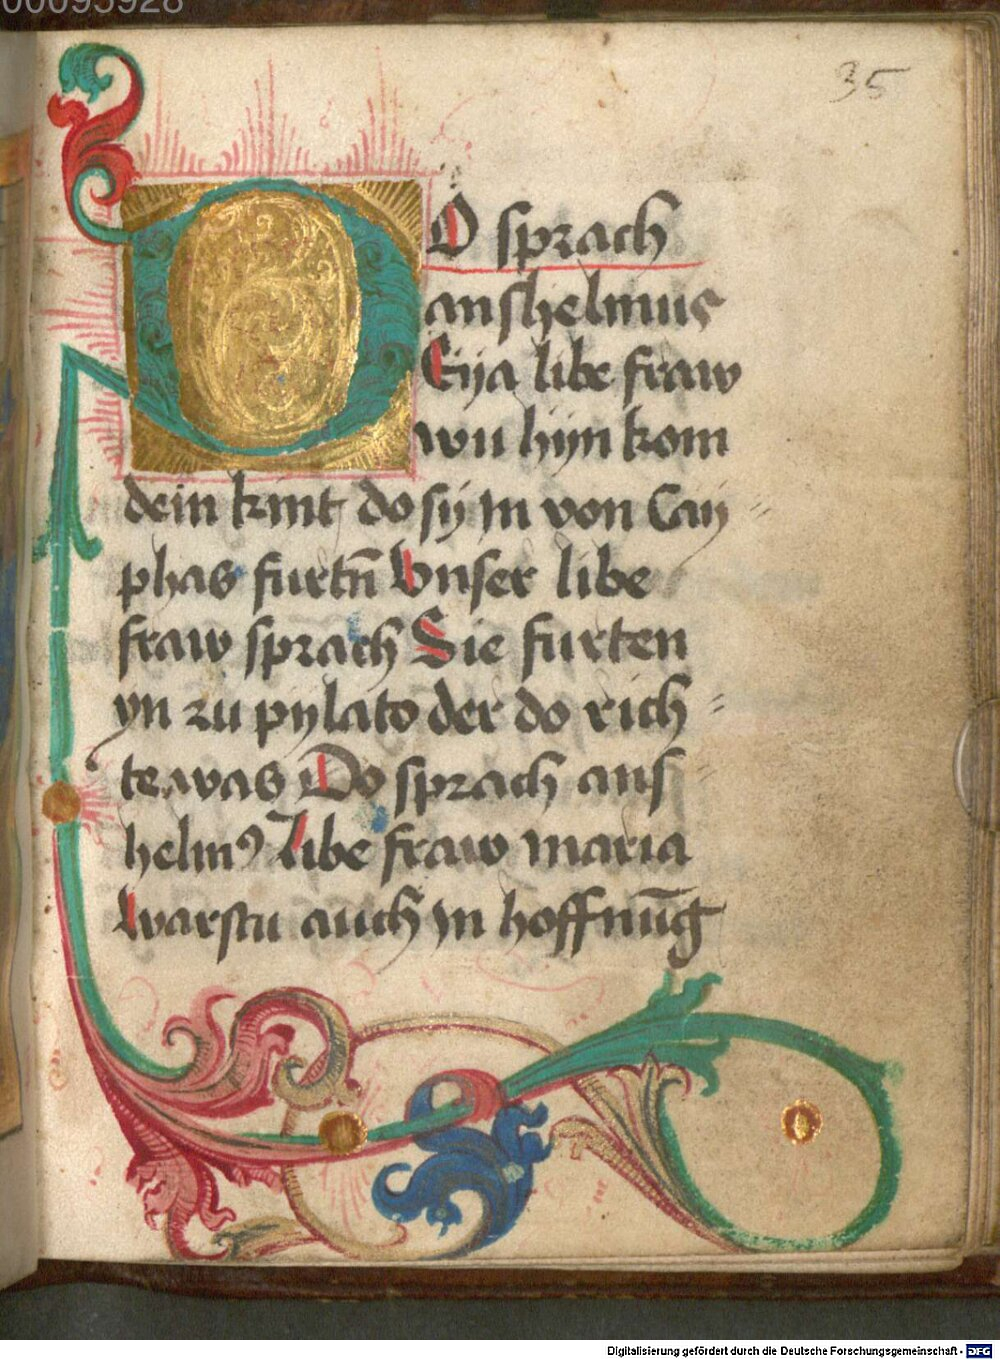 00095928
35
DO sprach
anshelmus
Eya libe fraw
wu hyn kom
dein kint do sy in von Cay=
phas furtn̄ Vnser libe
fraw sprach Sie furten
yn zu pylato der do rich=
te was Do sprach ans=
helmꝰ libe fraw maria
warstu auch in hoffnūg
Digitalisierung gefördert durch die Deutsche Forschungsgemeinschaft - DFG